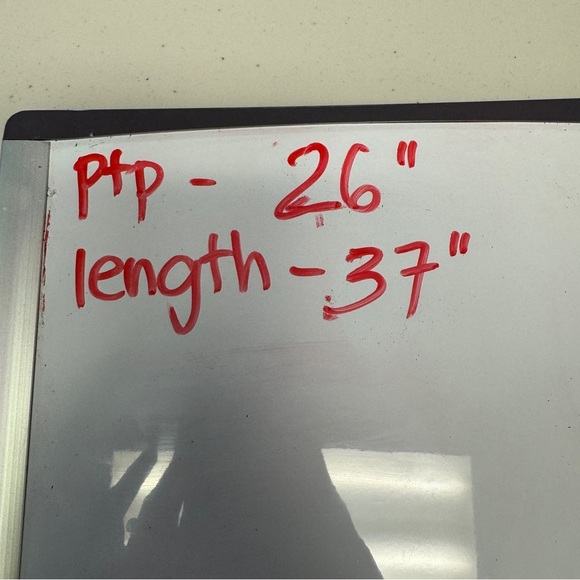 ptp - 26"
length - 37"